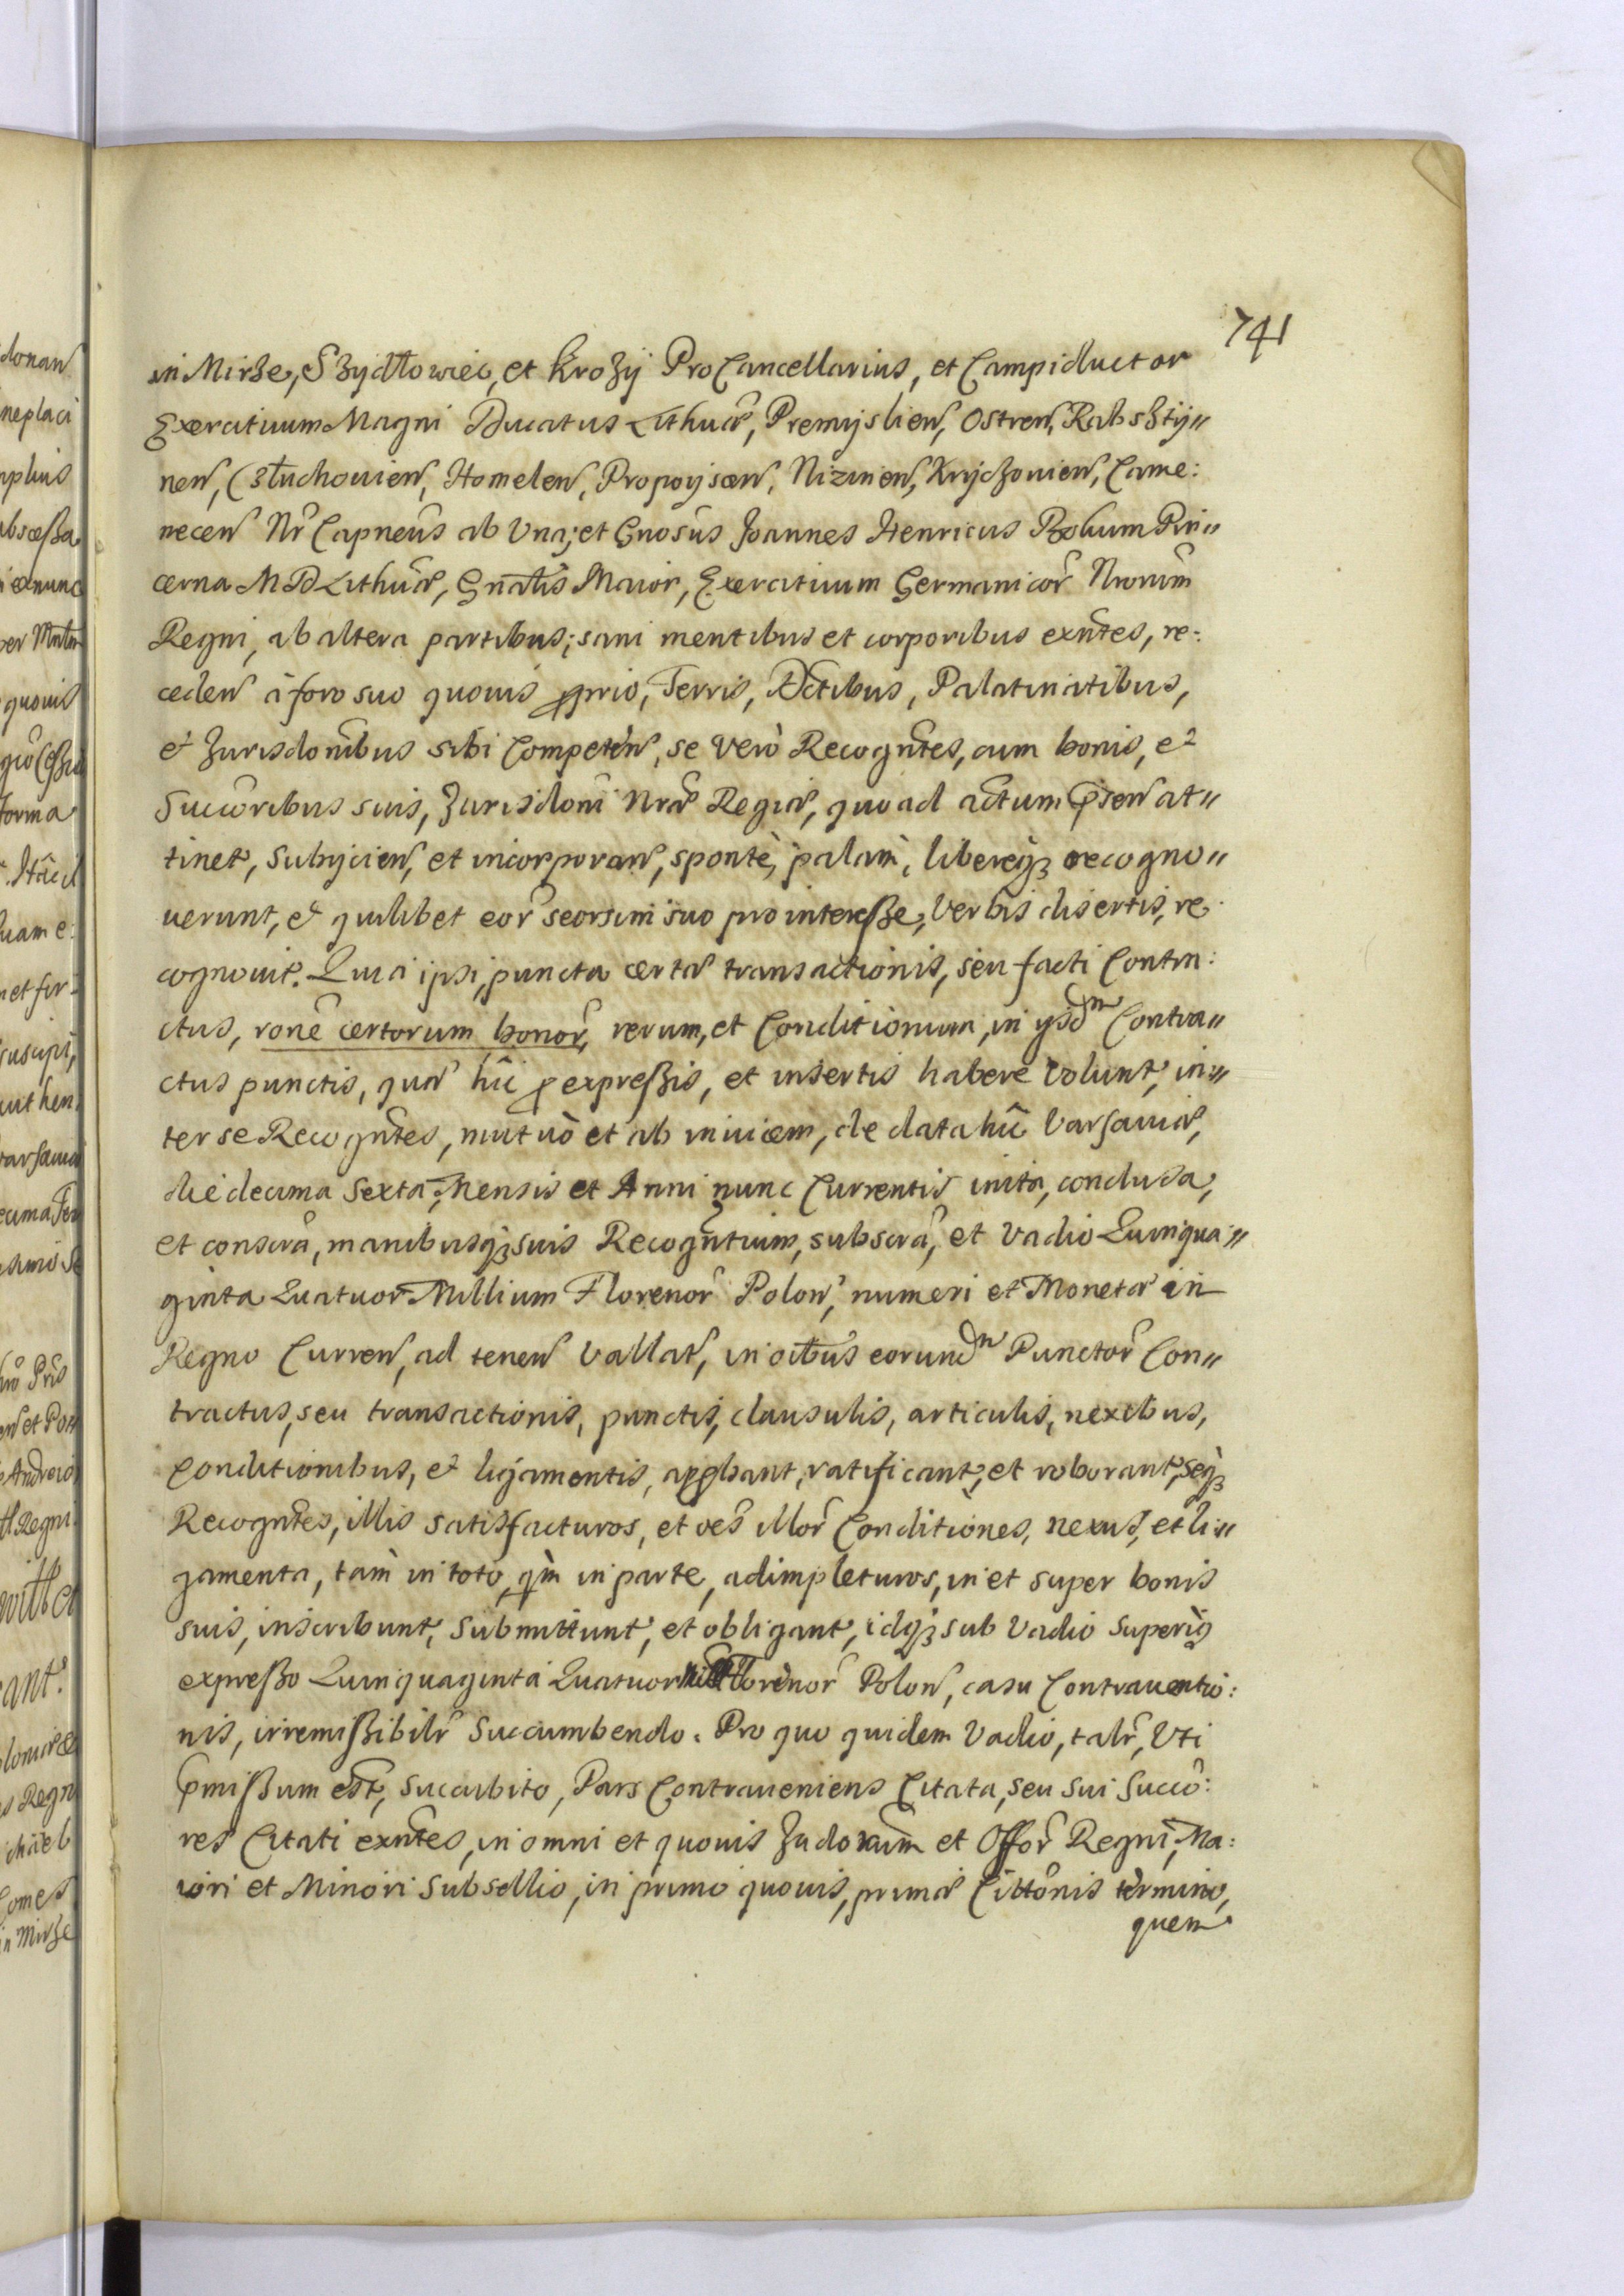 741
in Mirze, Szydłowiec, et Krozÿ ProCancellarius, et Campiductor
Exercituum Magni Ducatus Lithuae, Premysliens, Ostrens, Rabsztÿ"
nens, Człuchouiens, Homelens, Propoyscens, Nizinens, Kryczouiens, Came:
necens Nr Capneus ab Una; et Gnosus Joannes Henricus Bohum Pin"
cerna M D Lithuae, Gnalis Maior, Exercituum Germanicor Nrorum
Regni, ab altera partibus; sani mentibus et corporibus exntes, re:
cedens à foro suo quouis pprio, Terris, Dctibus, Palatinatibus,
et Jurisdonibus sibi Competen, se verò Recogntes, cum bonis, et
Succoribus suis, Jurisdoni Nrae Regiae, quo ad actum psens at"
tinet, Subijciens, et incorporans, spontè, palam, libereq recogno"
uerunt, et quilibet eor seorsim suo pro interesse, verbis disertis, re
cognouit. Quia ipsi, puncta certae transactionis, seu facti Contra:
ctus, rone certorum bonor, rerum, et Conditionum, in ysdm Contra"
ctus punctis, quae hic p expressis, et insertis habere volunt, in"
ter se Recogntes, mutuò et ab inuicem, de data hic Varsauiae,
die decima sexta, Mensis et Anni nunc Currentis inita, conclusa,
et conscra, manibusq suis Recogntium, subscra, et vadio Quinqua"
ginta Quatuor Millium Florenor Polon, numeri et Monetae in
Regno Curren, ad tenens vallat, in oibus eorundm Punctor Con"
tractus, seu transactionis, punctis, clausulis, articulis, nexibus,
Conditionibus, et ligamentis, appbant, ratificant, et roborant, seq
Recogntes, illis satisfacturos, et oes illor Conditiones, nexus, et li"
gamenta, tam in toto, qm in parte, adimpleturos, in et super bonis
suis, inscribunt, submittunt, et obligant, idq sub vadio superiq
expresso Quinquaginta Quatuor Mill Florenor Polon, casu Contrauentio:
nis, irremissibilr succumbendo. Pro quo quidem vadio, talr, Uti
pmissum est, succubito, Pars Contraueniens Citata, seu sui Succo:
res Citati exntes, in omni et quouis Judorum et Offor Regni, Ma:
iori et Minori Subsellio, in primo quouis, primae Cittonis termino,
quem